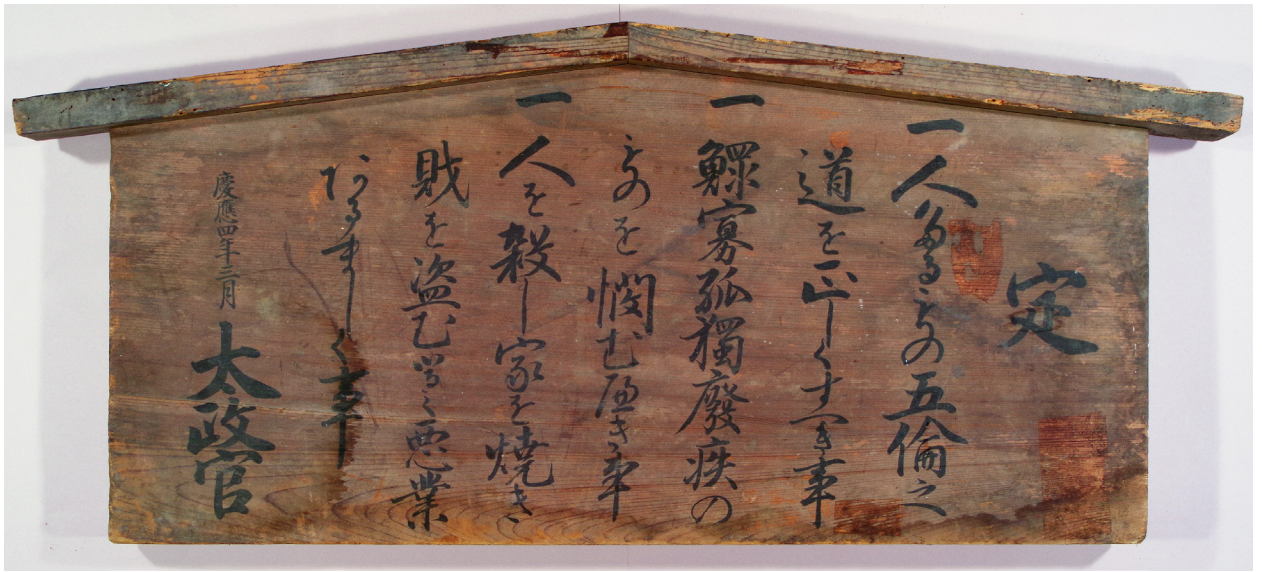 定
一人たるもの五倫之
道を正しくすへき事
一鰥寡孤獨廢疾の
ものを憫むへき事
一人を殺し家を焼き
財を盗む等之悪業
あるましく事
慶應四年三月
太政官